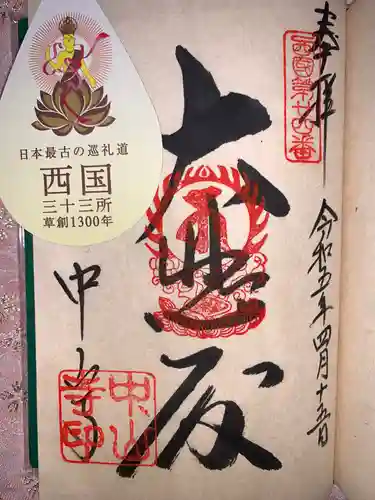 奉拝
西国第廿四番
令和五年四月十五日
大悲殿
中山寺
中山寺印
日本最古の巡礼道
西国
三十三所
草創1300年